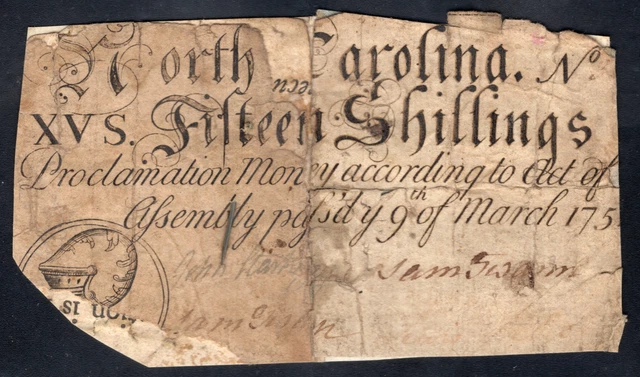 North Carolina. No
XVS. Fifteen Shillings
Proclamation Money according to Act of
Assembly pass'd ye 9th of March 175
John Sam Swann
Sam
is